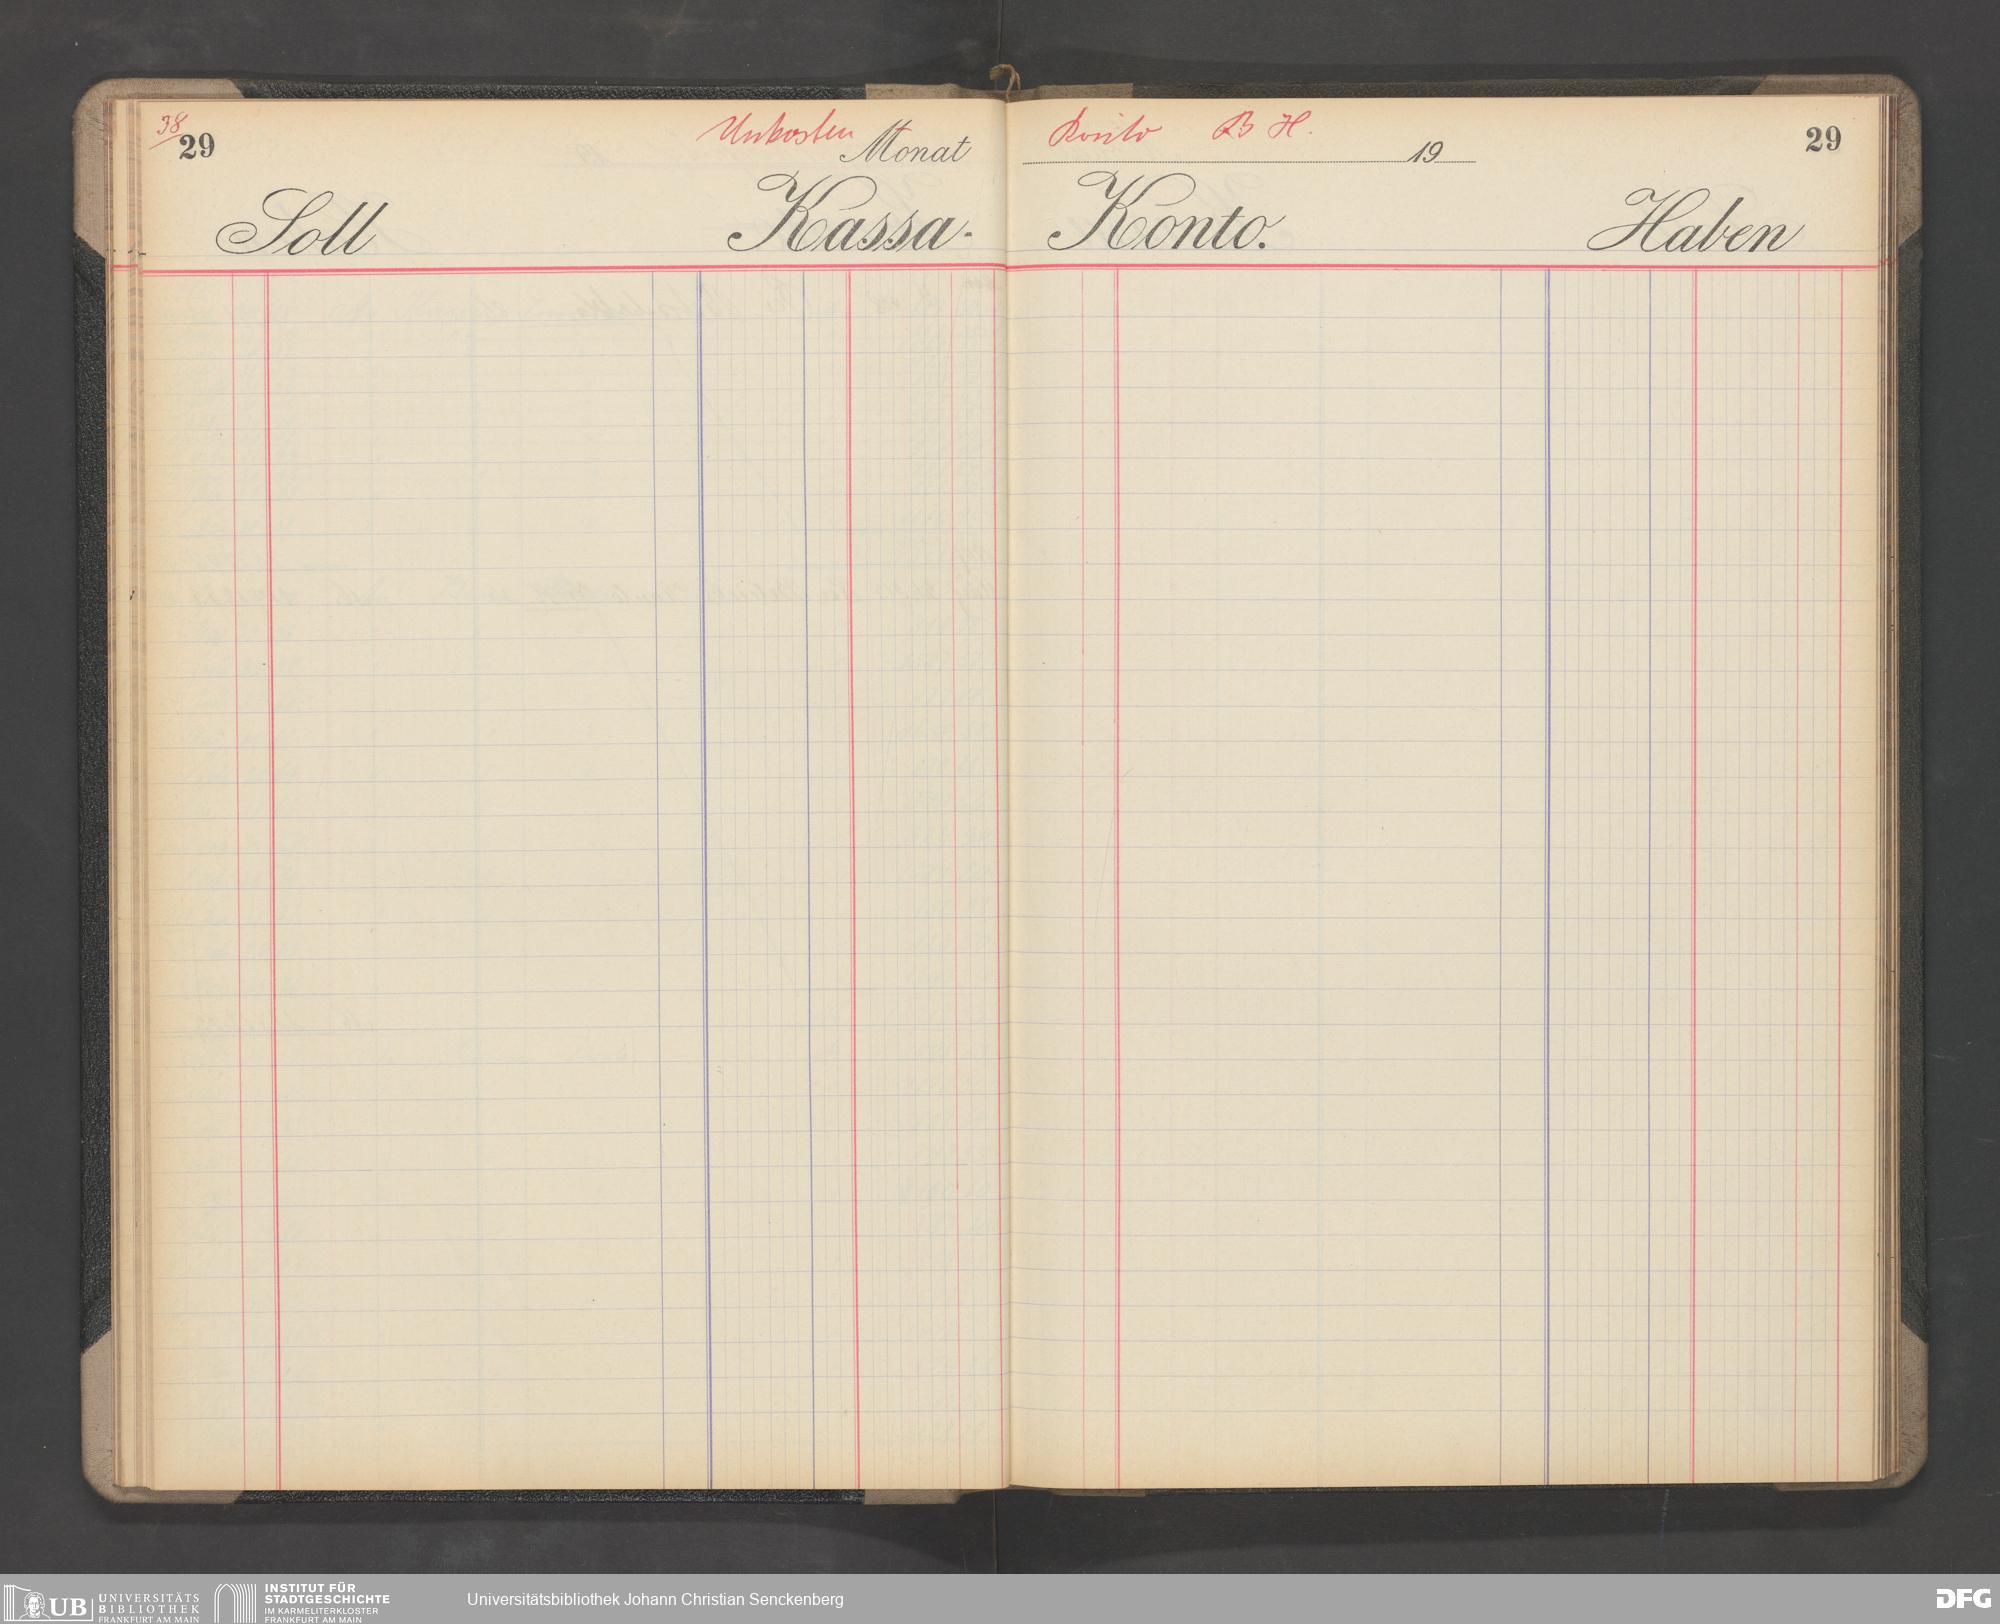 38
29
Unkosten Monat
Konto B H. 19
29
Soll
Kassa-
Konto.
Haben
UB UNIVERSITÄTS
BIBLIOTHEK
FRANKFURT AM MAIN
INSTITUT FÜR
STADTGESCHICHTE
IM KARMELITERKLOSTER
FRANKFURT AM MAIN
Universitätsbibliothek Johann Christian Senckenberg
DFG